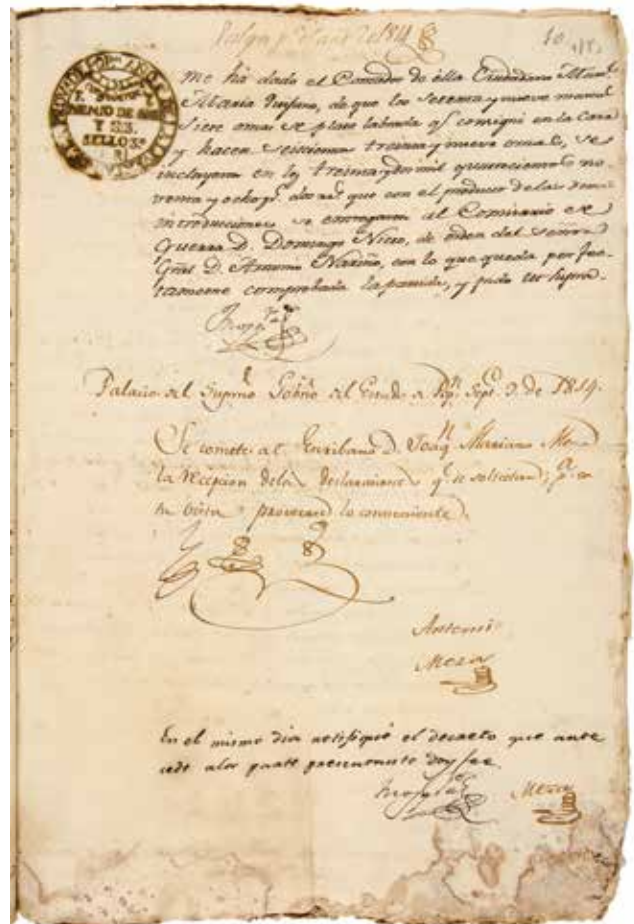 Valga p.ª el año de 1814
10
me ha dado el Contador de ella Ciudadano Man.l
Maria de que los setenta y nueve marcos
siete onzas de plata labrada q.e consigné en la Casa
y hacen seiscientas treinta y nueve onzas, se
incluyeron en los treinta y dos mil quinientos no-
venta y ocho p.s dos r.s que con el producto de las demas
introducciones se entregaron al Comisario de
Guerra D. Domingo Nieto, de orden del Señor
Gral D. Antonio Nariño, con lo que queda perfec-
tamente comprobada la partida, y pido ut supra.
Palacio del Suprmo Gobno del Estado de Pop.n Sept.e 9. de 1814.
Se comete al Escribano D. Joaq.n Mariano Mera
la recepcion delas declaraciones q.e se solicitan; p.a con
su vista proveerse lo conveniente.
Antemi
Mera
En el mismo dia notifiqué el decreto que ante
cede ala parte presentante doy fee.
Mera